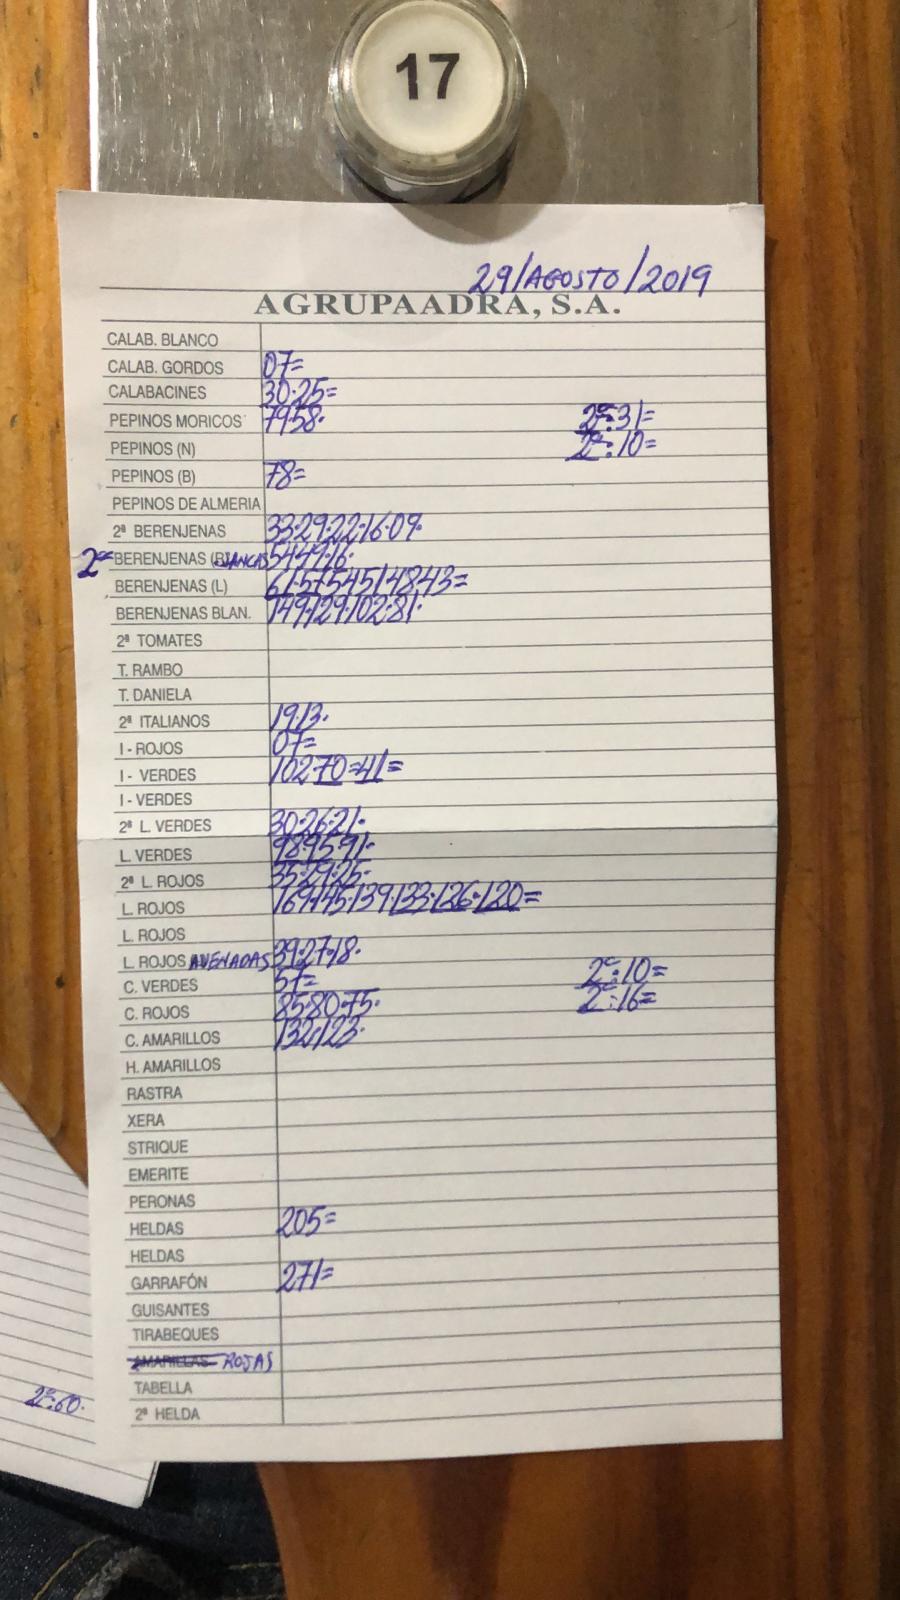 17
29/AGOSTO/2019
AGRUPAADRA, S.A.
CALAB. BLANCO
CALAB. GORDOS 07=
CALABACINES 30·25=
PEPINOS MORICOS 79·58· 2ª:31=
PEPINOS (N) 2ª:10=
PEPINOS (B) 78=
PEPINOS DE ALMERIA
2ª BERENJENAS 33·29·22·16·09·
2ª BERENJENAS (BLANCAS 54·49·16·
BERENJENAS (L) 61·57·54·51·48·43=
BERENJENAS BLAN. 149·129·102·81·
2ª TOMATES
T. RAMBO
T. DANIELA
2ª ITALIANOS 19·13·
I - ROJOS 07=
I - VERDES 102·70=41=
I - VERDES
2ª L. VERDES 30·26·21·
L. VERDES 98·95·91·
2ª L. ROJOS 35·29·25·
L. ROJOS 169·145·139·133·126·120=
L. ROJOS
L. ROJOS 39·27·18·
C. VERDES 57= 2ª:10=
C. ROJOS 85·80·75· 2ª:16=
C. AMARILLOS 132·123·
H. AMARILLOS
RASTRA
XERA
STRIQUE
EMERITE
PERONAS
HELDAS 205=
HELDAS
GARRAFÓN 271=
GUISANTES
TIRABEQUES
AMARILLAS ROJAS
TABELLA
2ª HELDA
2ª:60·